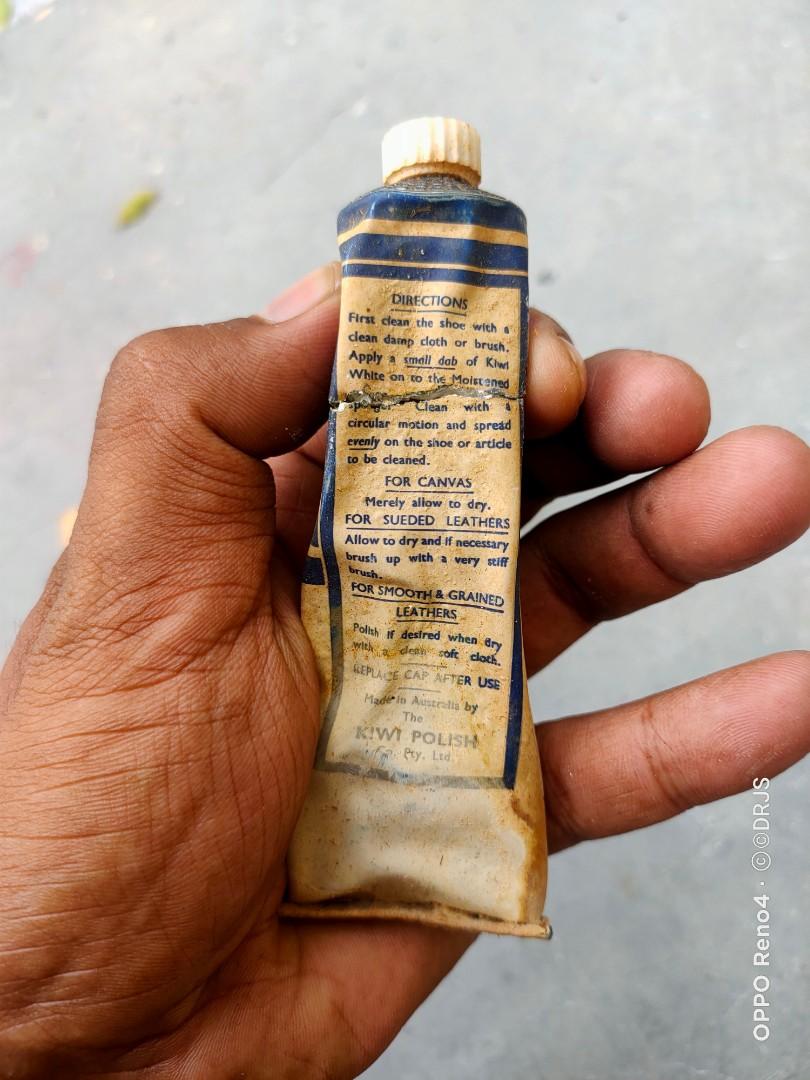 DIRECTIONS
First clean the shoe with a
clean damp cloth or brush.
Apply a small dab of Kiwi
White on to the Moistened
sponge. Clean with a
circular motion and spread
evenly on the shoe or article
to be cleaned.
FOR CANVAS
Merely allow to dry.
FOR SUEDED LEATHERS
Allow to dry and if necessary
brush up with a very stiff
brush.
FOR SMOOTH & GRAINED
LEATHERS
Polish if desired when dry
with a clean soft cloth.
REPLACE CAP AFTER USE
Made in Australia by
The
KIWI POLISH
Co. Pty. Ltd.
OPPO Reno4 · ©©DRJS